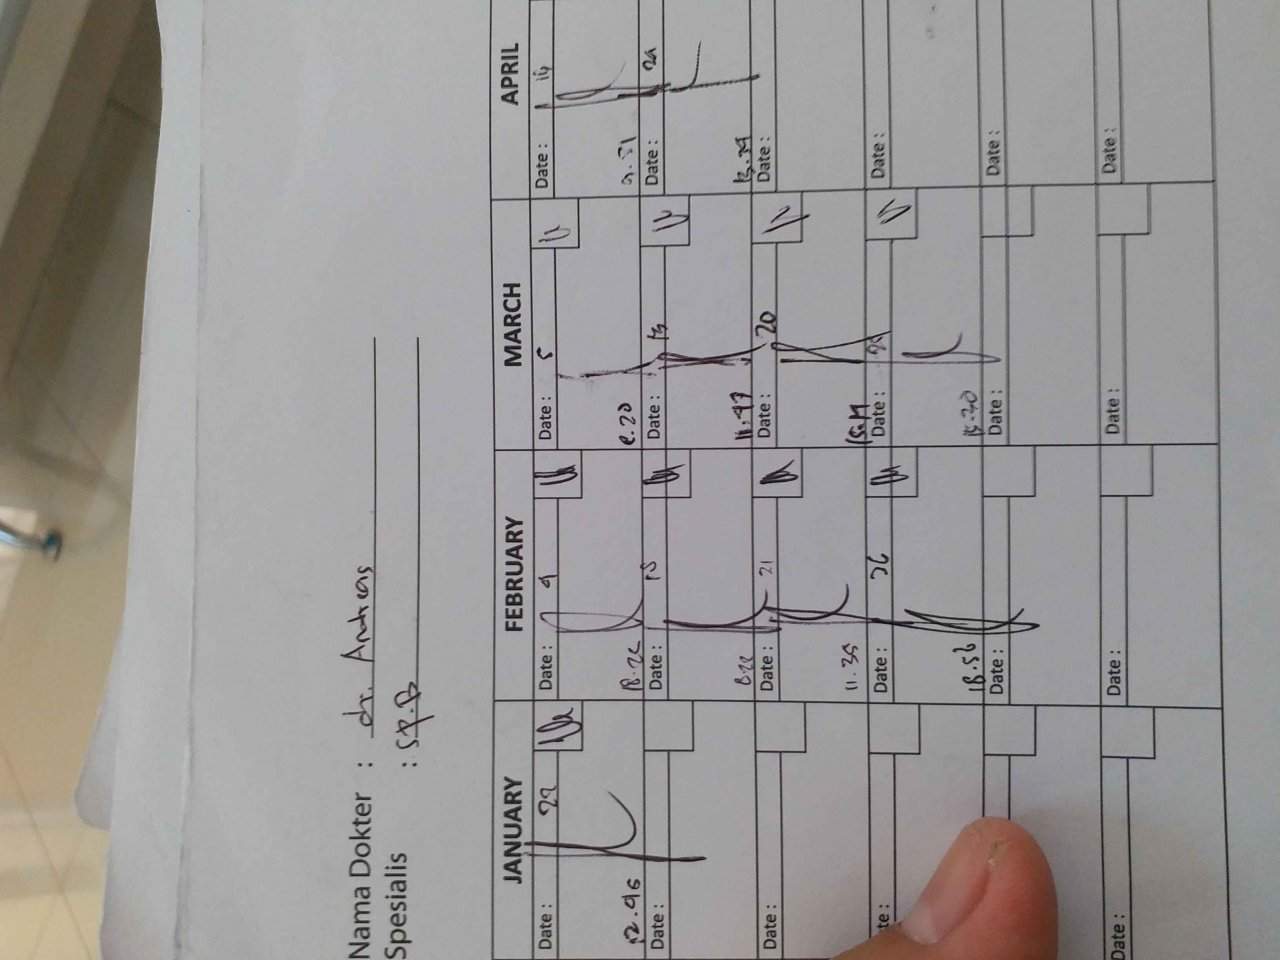 Nama Dokter : dr. Andreas
Spesialis : Sp.B
JANUARY FEBRUARY MARCH APRIL
Date : 22 Date : 9 Date : 5 Date : 14
12.45 18.22 8.20 9.51
Date : 15 Date : 13 Date : 29
8.22 11.47 13.39
Date : Date : 21 Date : 20 Date :
11.35 15.19
Date : 26 Date : Date :
18.56 15.30
Date : Date : Date :
Date : Date : Date : Date :